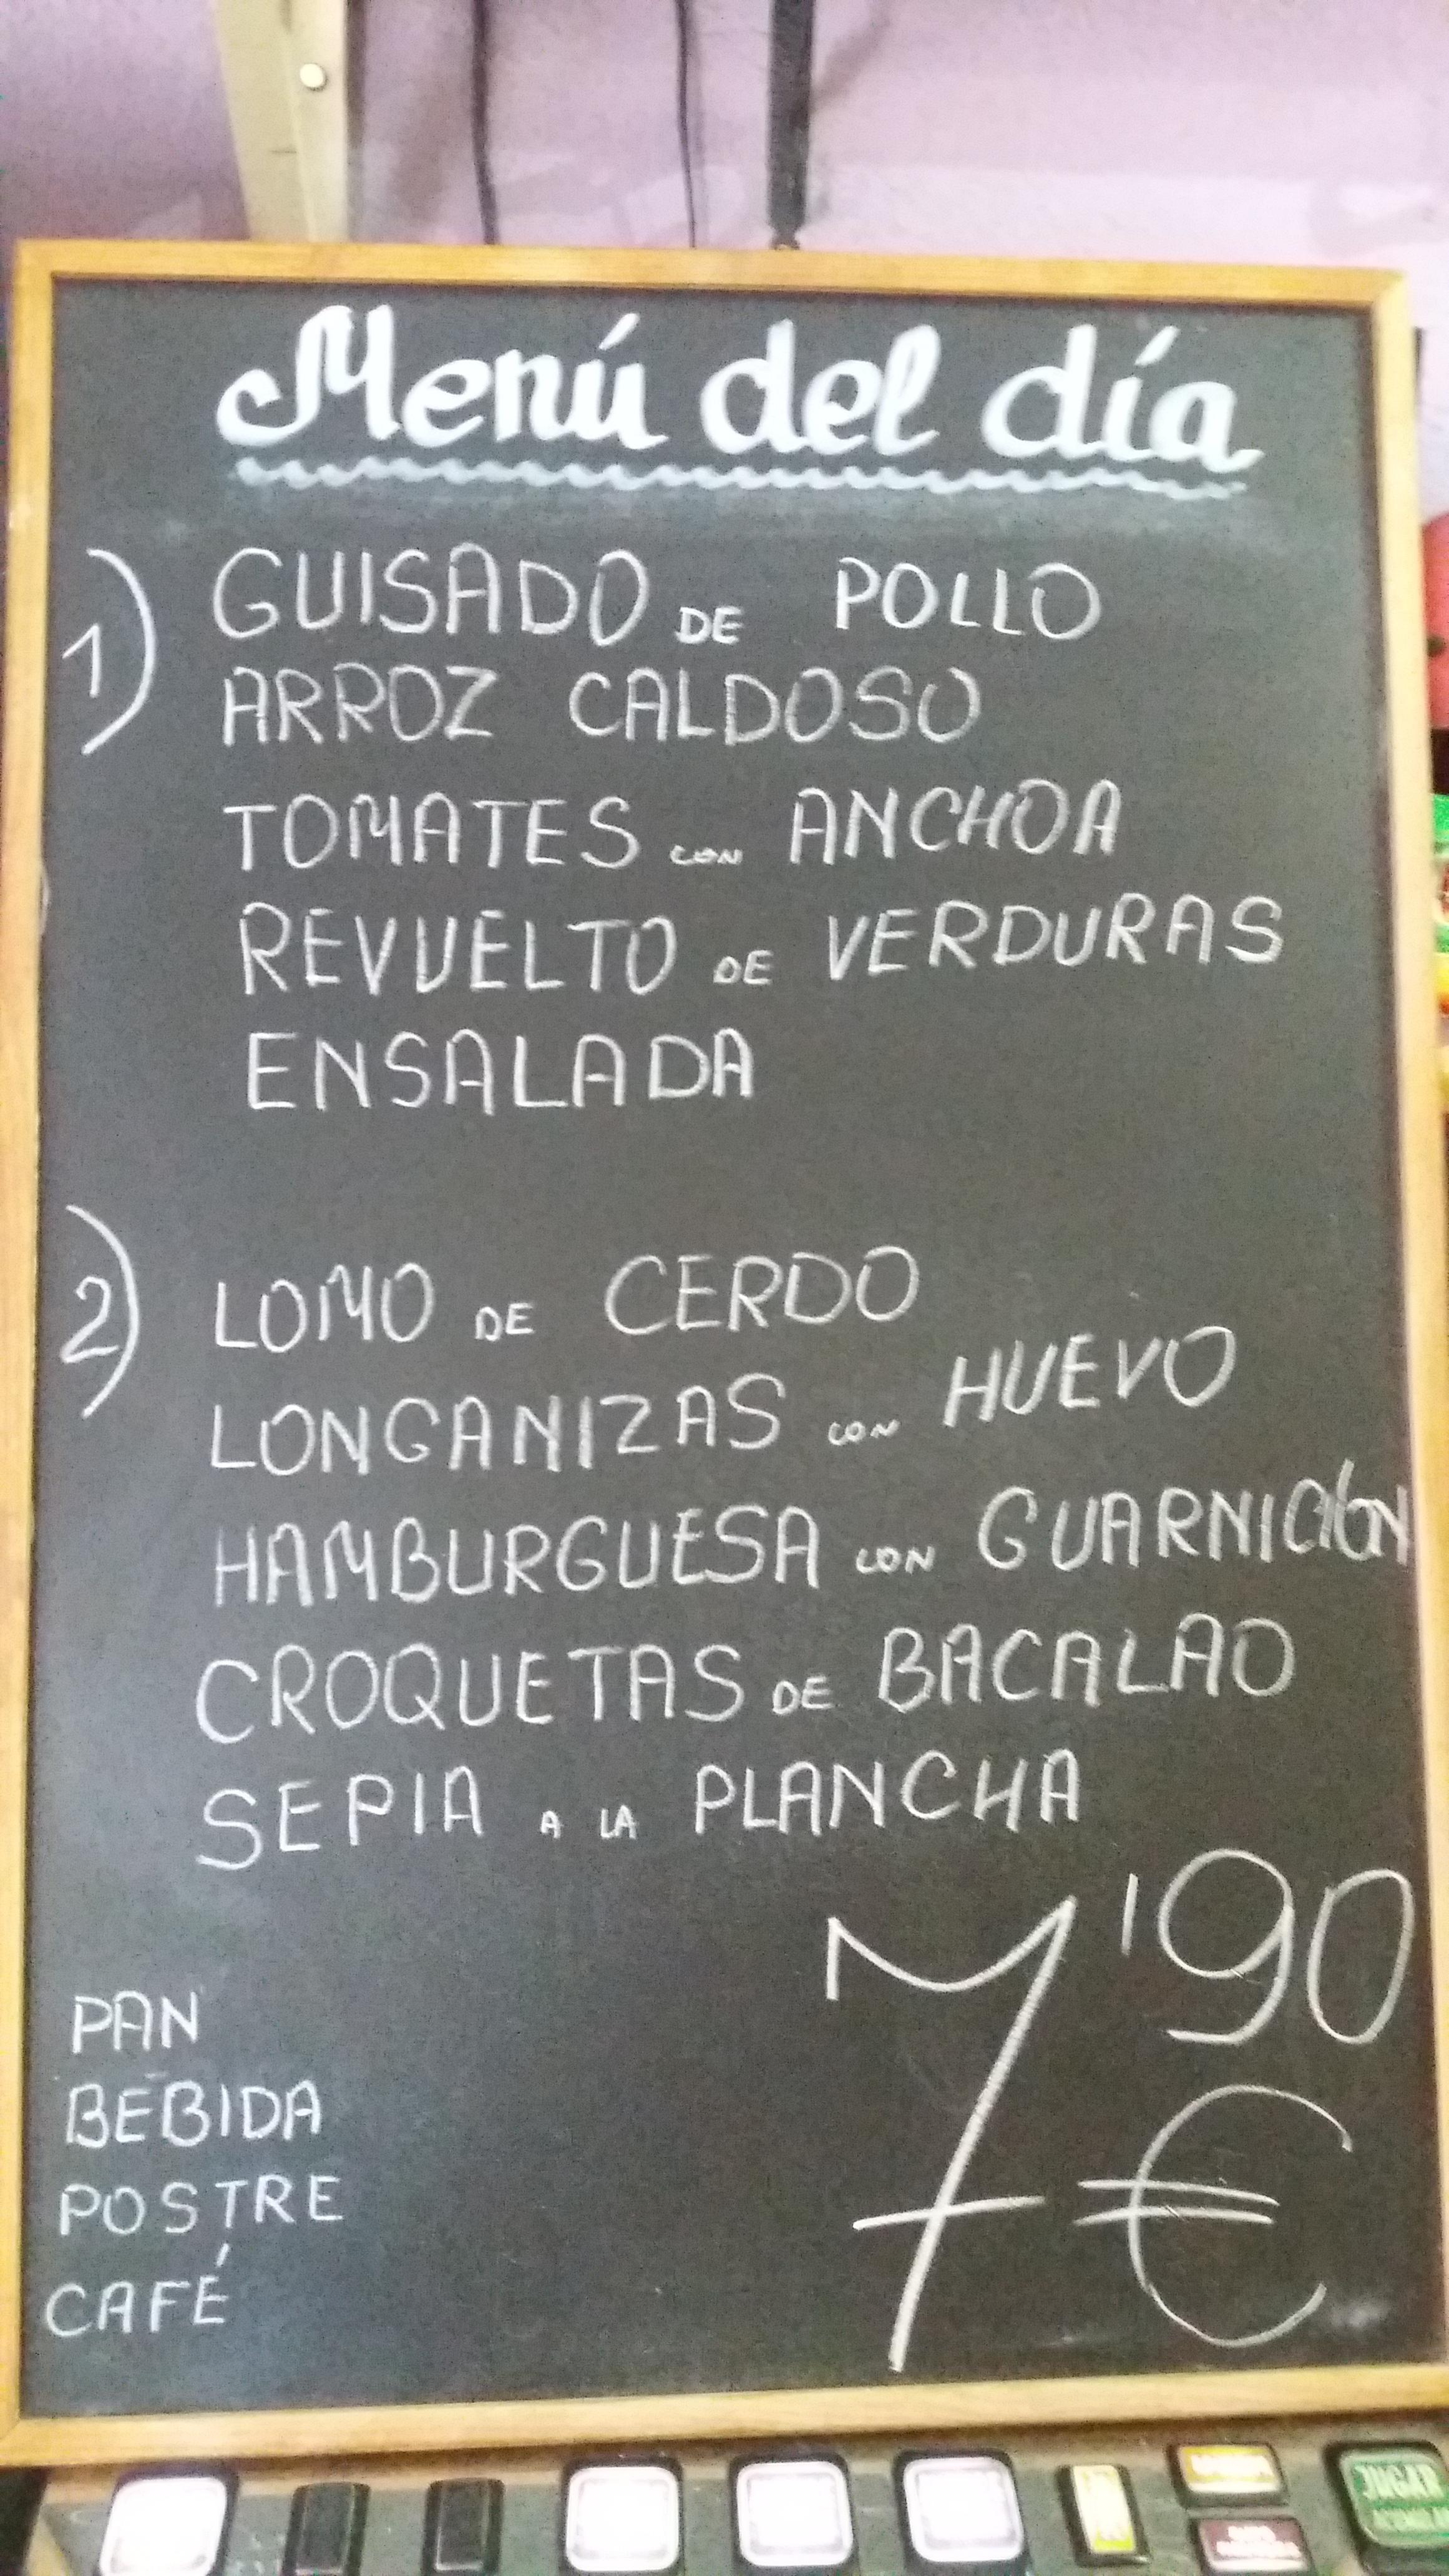 Menú del día
1) GUISADO DE POLLO
ARROZ CALDOSO
TOMATES CON ANCHOA
REVUELTO DE VERDURAS
ENSALADA
2) LOMO DE CERDO
LONGANIZAS CON HUEVO
HAMBURGUESA CON GUARNICIÓN
CROQUETAS DE BACALAO
SEPIA A LA PLANCHA
7'90 €
PAN
BEBIDA
POSTRE
CAFÉ
JUGAR